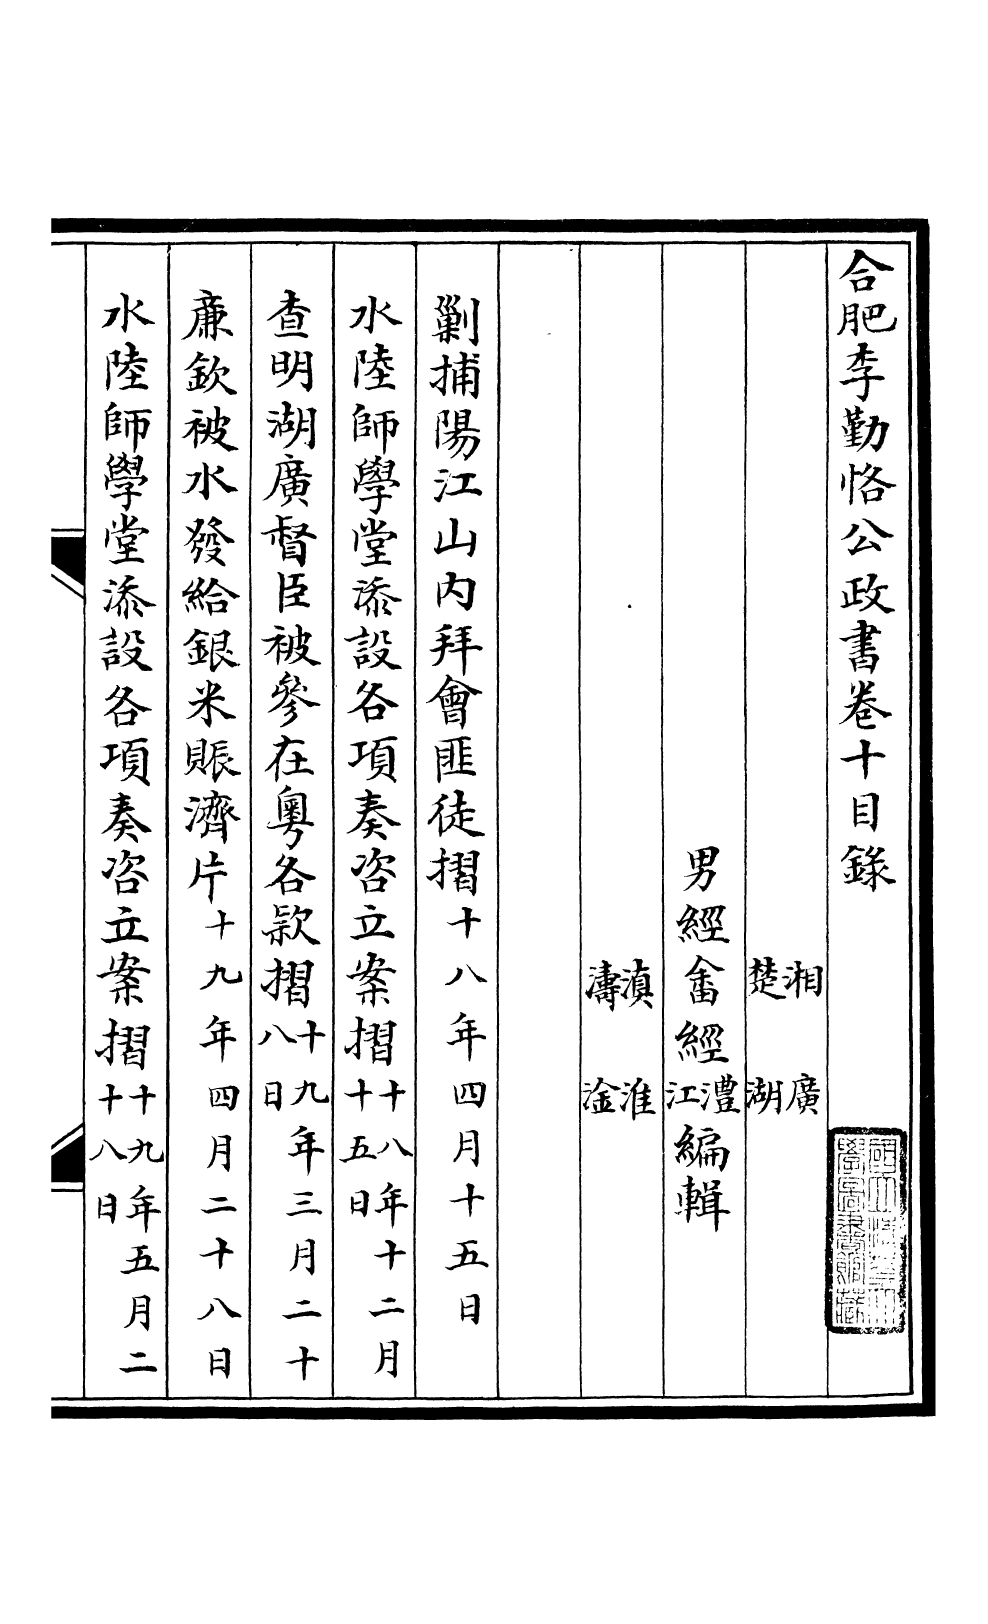 合肥李勤恪公政書卷十目錄
湘 廣
楚 湖
男經畬經澧江編輯
滇 淮
濤 淦
剿捕陽江山内拜會匪徒摺十八年四月十五日
水陸師學堂添設各項奏咨立案摺十八年十二月十五日
查明湖廣督臣被參在粵各款摺十九年三月二十八日
廉欽被水發給銀米賑濟片十九年四月二十八日
水陸師學堂添設各項奏咨立案摺十九年五月二十八日
國立清華大
學圖書館藏